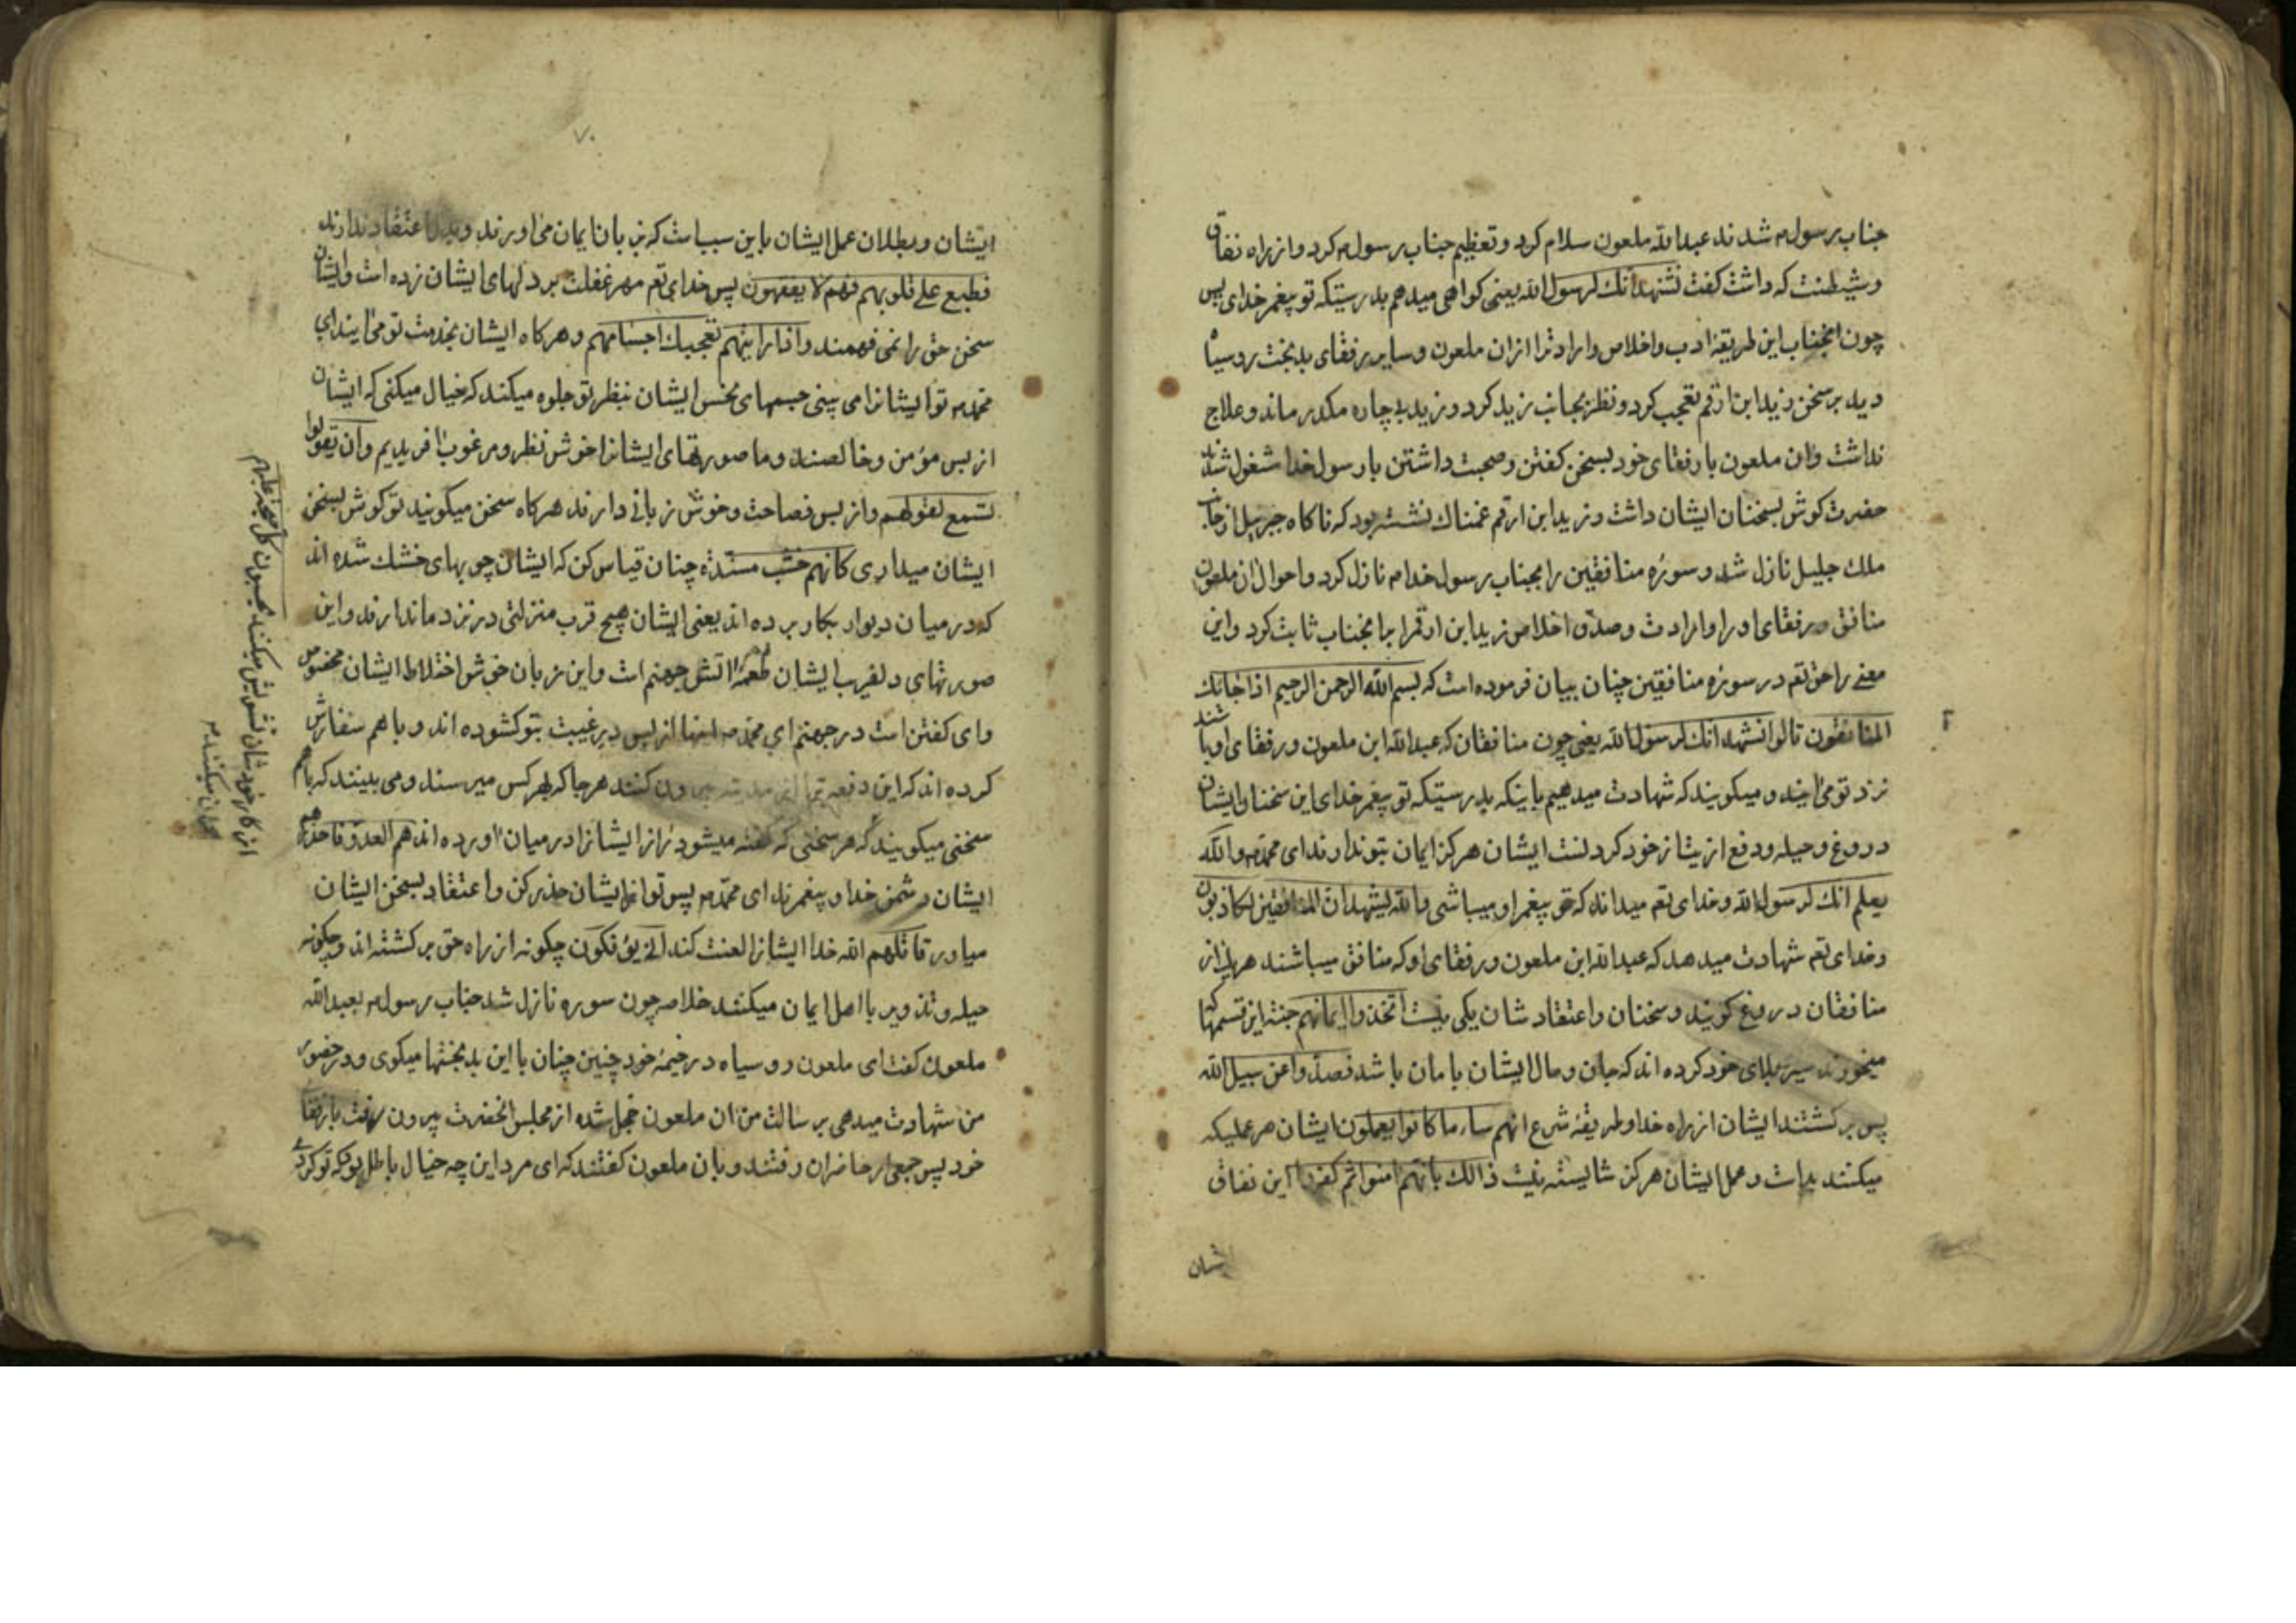 جناب رسول م شدند عبدالله ملعون سلام کرد و تعظیم جناب رسول م کرد و از راه نفاق
و شیطنت که داشت کفت نشهد انک لرسول الله یعنی کواهی میدهم بدرستیکه تو پیغمر خدای پس
چون انجناب این طریقهٔ ادب و اخلاص و ارادترا از ان ملعون و سایر رفقای بدبخت روسیاه
دید بر سخن زید ابن ارقم تعجب کرد و نظر بجانب زید کرد و زید بیچاره مکدر ماند و علاج
نداشت و ان ملعون با رفقای خود بسخن کفتن و صحبت داشتن با رسول خدا شغول شدند
حضرت کوش بسخنان ایشان داشت و زید ابن ارقم غمناک نشسته بود که ناکاه جبرییل از جانب
ملک جلیل نازل شد و سورهٔ منافقین را بجناب رسول خدا م نازل کرد و احوال ان ملعون
منافق و رفقای او را و ارادت و صدق اخلاص زید ابن ارقم را با نجناب ثابت کرد و این
معنے را حق تعم در سورهٔ منافقین چنان بیان فرموده است که بسم الله الرحمن الرحیم اذا جائک
المنافقون قالوا نشهد انک لرسول الله یعنی چون منافقان که عبدالله ابن ملعون و رفقای او باشند
نزد تو می ایند و میکویند که شهادت میدهیم باینکه بدرستیکه تو پیغمر خدای این سخنان ایشان
دروغ و حیله و دفع از یشان خود کردنست ایشان هرکز ایمان بتو ندارند ای محمد م والله
یعلم انک لرسول الله و خدای تعم میداند که تو پیغمر او میباشی والله لیشهد ان المنافقین لکاذبون
و خدای تعم شهادت میدهد که عبدالله ابن ملعون و رفقای او که منافق میباشند هریک از
منافقان دروغ کویند و سخنان و اعتقاد شان یکی نیست اتخذوا ایمانهم جنة این قسمها که
میخورند سپر بلای خود کرده اند که جان و مال ایشان با مان باشد فصدوا عن سبیل الله
پس برکشتند ایشان از راه خدا و طریقهٔ شرع انهم ساء ما کانوا یعملون ایشان هر عملیکه
میکنند بد است و عمل ایشان هرکز شایسته نیست ذالک بانهم امنوا ثم کفروا این نفاق
شان
۷۰
ایشان و بطلان عمل ایشان باین سبب است که بزبان ایمان می اورند و بدل اعتقاد ندارند
فطبع علے قلوبهم فهم لا یفقهون پس خدای تعم مهر غفلت بر دلهای ایشان زده است و ایشان
سخن حق را نمی فهمند و اذا رایتهم تعجبک اجسامهم و هرکاه ایشان بخدمت تو می ایند ای
محمد م تو ایشانرا می بینی جسمهای نحس ایشان بنظر تو جلوه میکند که خیال میکنی که ایشان
از بس مؤمن و خالصند و ما صورتهای ایشانرا خوش نظر و مرغوب افریدیم و ان یقولوا
تسمع لقولهم و از بس فصاحت و خوش زبانی دارند هرکاه سخن میکویند تو کوش بسخن
ایشان میداری کانهم خشب مسندة چنان قیاس کن که ایشان چوبهای خشک شده اند
که در میان دیوار بکار برده اند یعنی ایشان هیچ قرب منزلتی در نزد ما ندارند و این
صورتهای دلفریب ایشان طعمهٔ اتش جهنم است و این زبان خوش اختلاط ایشان مخصوص
وای کفتن است در جهنم ای محمد م اینها از پس در غیبت بتو کشوده اند و با هم سفارش
کرده اند که این دفعه ترا از مدینه بیرون کنند هر جا که بهر کس میرسند و می بینند که باهم
سخنی میکویند که هر سخنی که کفته میشود راز ایشانرا در میان اورده اند هم العدو فاحذرهم
ایشان دشمن خدا و پیغمرند ای محمد م پس تو از ایشان حذر کن و اعتقاد بسخن ایشان
میاور قاتلهم الله خدا ایشانرا لعنت کند انی یؤفکون چکونه از راه حق برکشته اند و چکونه
حیله و تذویر با اهل ایمان میکنند خلاصه چون سوره نازل شد جناب رسول م بعبدالله
ملعون کفت ای ملعون روسیاه در خیمهٔ خود چنین چنان با این بدبختها میکوی و در حضور
من شهادت میدهی برسالت من ان ملعون خجل شده از مجلس انحضرت بیرون رفت با رفقا
خود پس جمعی از حاضران رفتند و بان ملعون کفتند که ای مرد این چه خیال باطل بود که تو کردی
یحسبون کل صیحة علیهم
از کار خودشان تشویش میکنند
کمان میکنند م